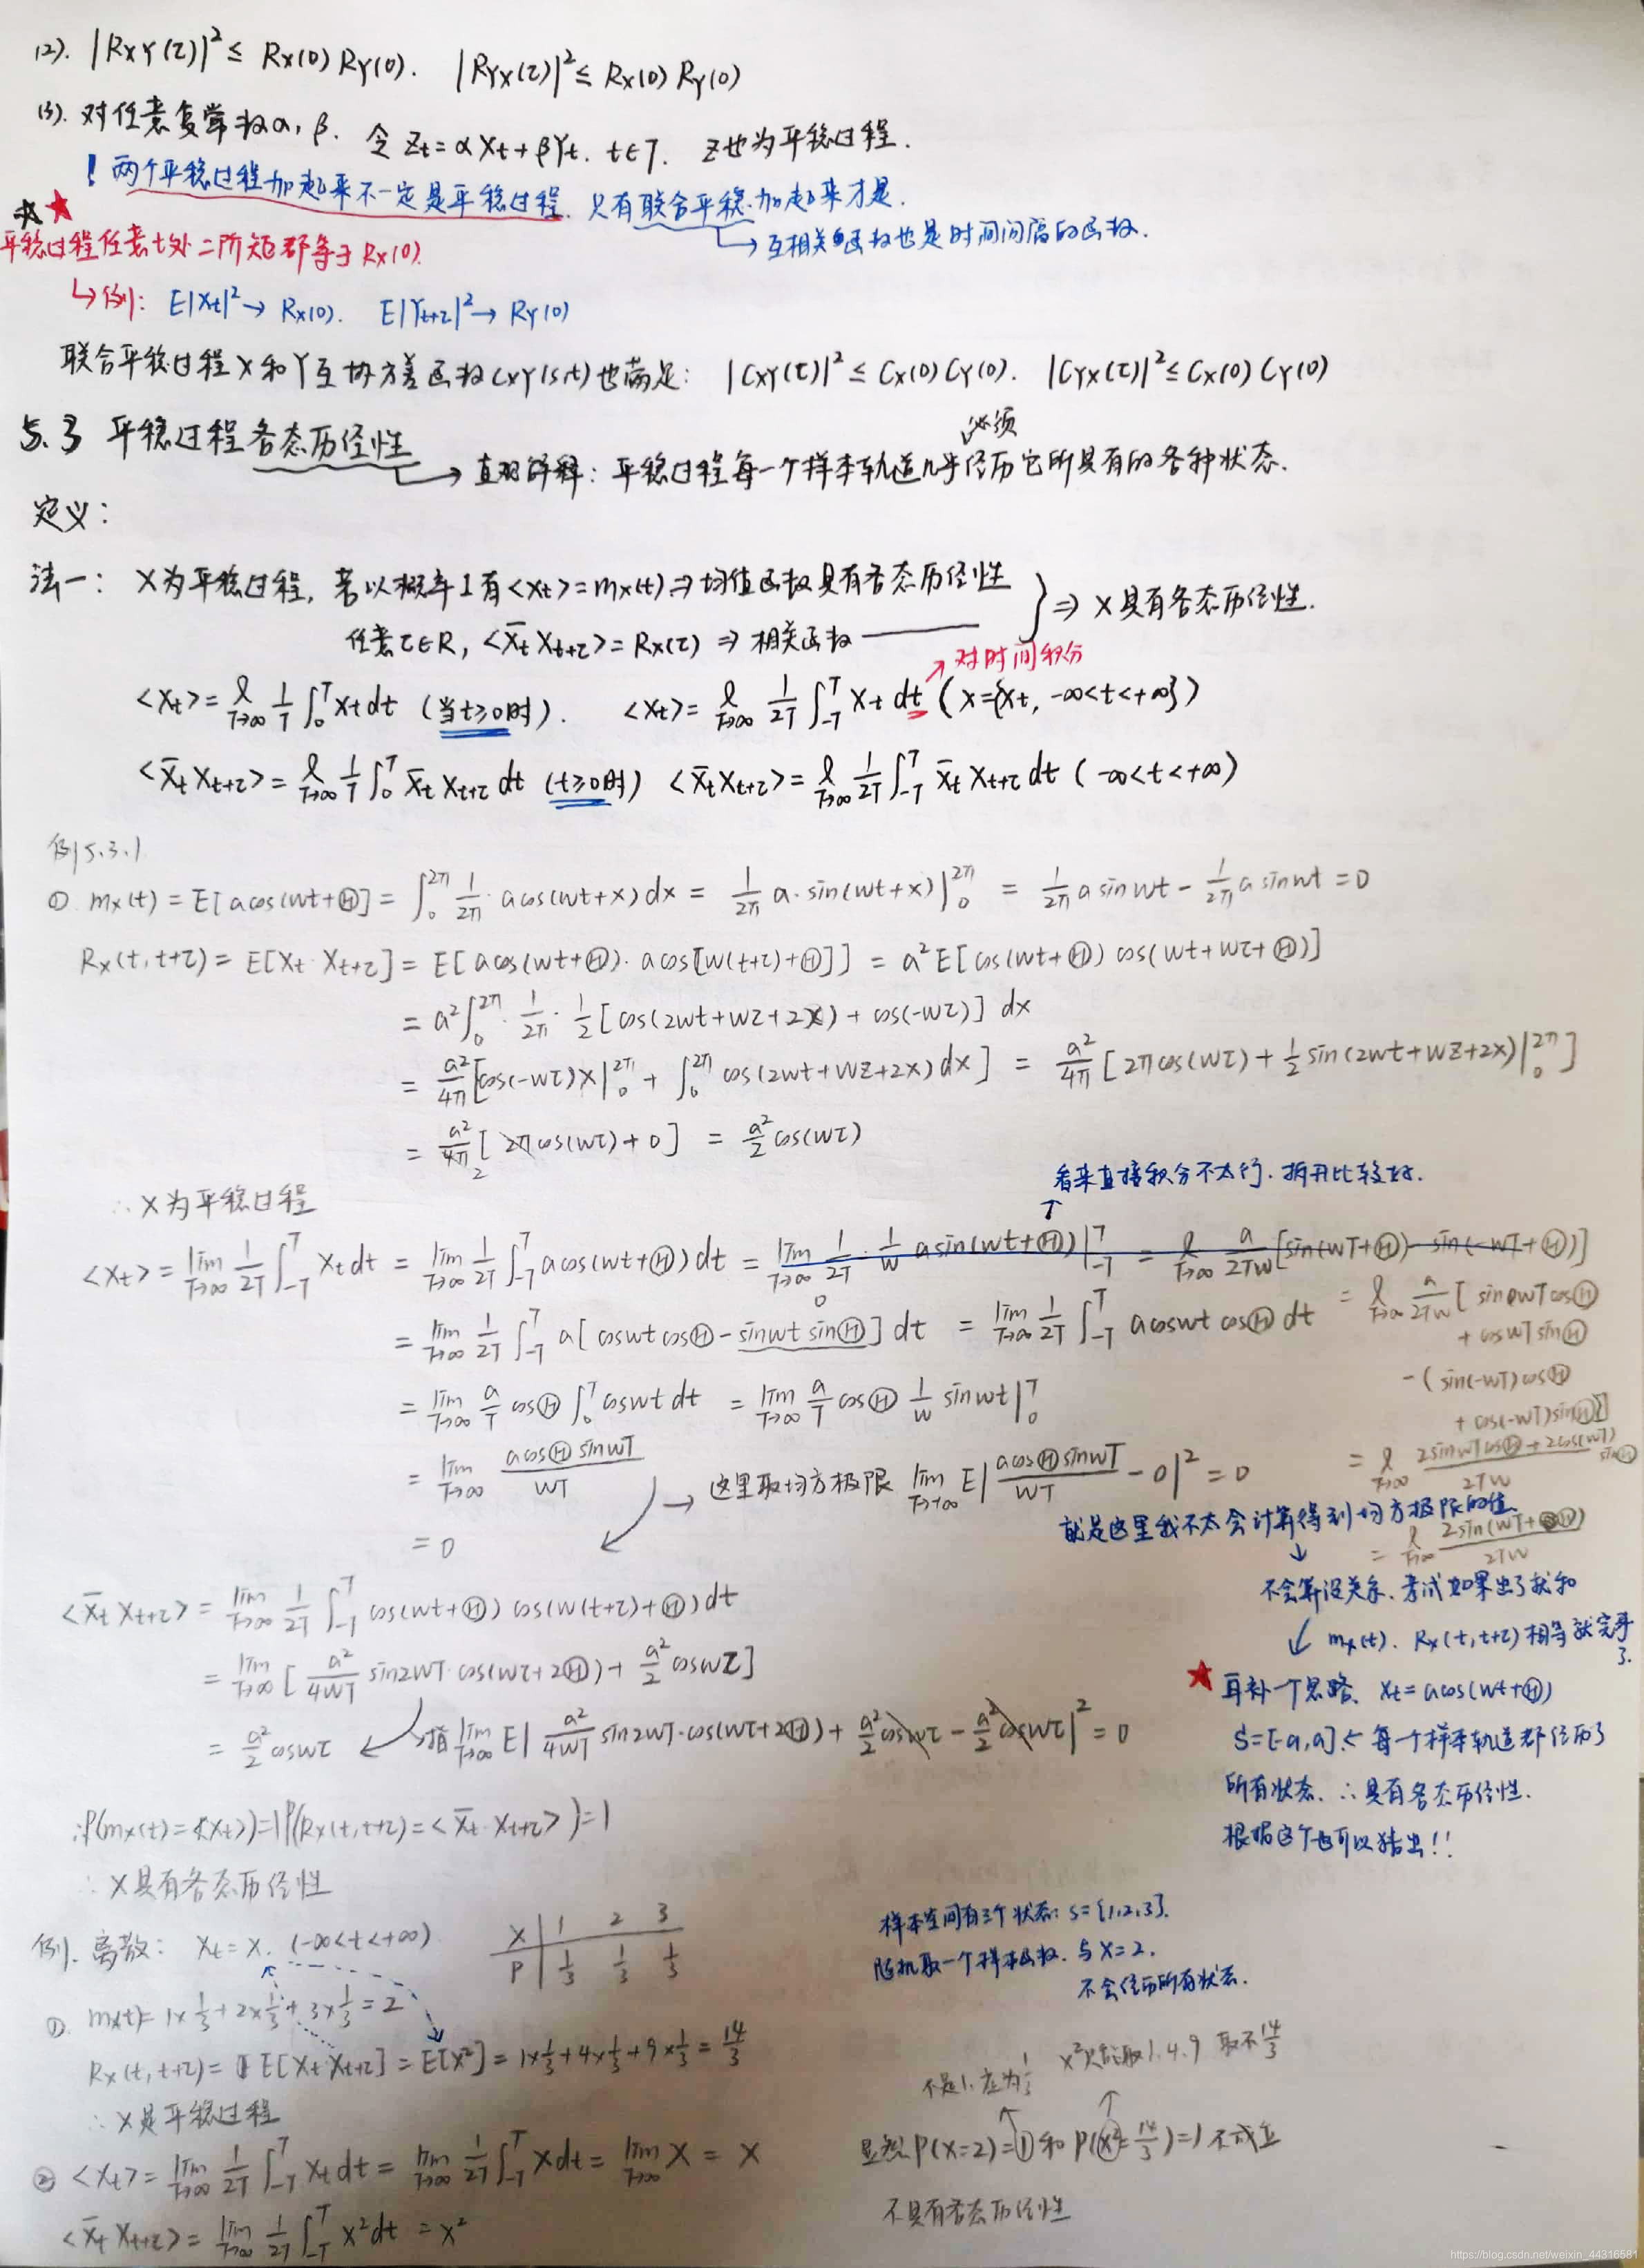 (2). |RXY(τ)|² ≤ RX(0) RY(0). |RYX(τ)|² ≤ RX(0) RY(0)
(3). 对任意复常数α, β. 令 Zt = αXt + βYt. t∈T. Z也为平稳过程.
! 两个平稳过程加起来不一定是平稳过程. 只有联合平稳.加起来才是.
↳ 互相关函数也是时间间隔的函数.
平稳过程任意t处二阶矩都等于RX(0).
↳例: E|Xt|² → RX(0). E|Yt+τ|² → RY(0)
联合平稳过程X和Y互协方差函数CXY(s,t)也满足: |CXY(τ)|² ≤ CX(0) CY(0). |CYX(τ)|² ≤ CX(0) CY(0)
必须
5.3 平稳过程各态历经性 → 直观解释: 平稳过程每一个样本轨道几乎经历它所具有的各种状态.
定义:
法一: X为平稳过程, 若以概率1有<Xt> = mX(t) ⇒ 均值函数具有各态历经性
任意τ∈R, <X̄t Xt+τ> = RX(τ) ⇒ 相关函数 —— } ⇒ X具有各态历经性.
对时间积分
<Xt> = l T→∞ 1/T ∫₀ᵀ Xt dt (当t≥0时). <Xt> = l T→∞ 1/2T ∫₋Tᵀ Xt dt (X={Xt, -∞<t<+∞})
<X̄t Xt+τ> = l T→∞ 1/T ∫₀ᵀ X̄t Xt+τ dt (t≥0时) <X̄t Xt+τ> = l T→∞ 1/2T ∫₋Tᵀ X̄t Xt+τ dt (-∞<t<+∞)
例5.3.1
① mX(t) = E[acos(wt+Ⓗ)] = ∫₀^2π 1/2π · acos(wt+x)dx = 1/2π a·sin(wt+x)|₀^2π = 1/2π a sinwt - 1/2π a sinwt = 0
RX(t,t+τ) = E[Xt Xt+τ] = E[acos(wt+Ⓗ)·acos[w(t+τ)+Ⓗ]] = a²E[cos(wt+Ⓗ) cos(wt+wτ+Ⓗ)]
= a²∫₀^2π · 1/2π · 1/2 [cos(2wt+wτ+2x) + cos(-wτ)] dx
= a²/4π [cos(-wτ)x|₀^2π + ∫₀^2π cos(2wt+wτ+2x)dx] = a²/4π [2πcos(wτ) + 1/2 sin(2wt+wτ+2x)|₀^2π]
= a²/4π [2πcos(wτ)+0] = a²/2 cos(wτ)
看来直接积分不太行.拆开比较好.
∴ X为平稳过程
<Xt> = lim T→∞ 1/2T ∫₋Tᵀ Xt dt = lim T→∞ 1/2T ∫₋Tᵀ acos(wt+Ⓗ)dt = lim T→∞ 1/2T · 1/w asin(wt+Ⓗ)|₋Tᵀ = l T→∞ a/2Tw [sin(wT+Ⓗ) - sin(-wT+Ⓗ)]
= lim T→∞ 1/2T ∫₋Tᵀ a[coswt cosⒽ - sinwt sinⒽ] dt = lim T→∞ 1/2T ∫₋Tᵀ acoswt cosⒽ dt
= l T→∞ a/2Tw [sinwT cosⒽ
+ coswT sinⒽ
-(sin(-wT)cosⒽ
+ cos(-wT)sinⒽ)]
= lim T→∞ a/T cosⒽ ∫₀ᵀ coswt dt = lim T→∞ a/T cosⒽ 1/w sinwt|₀ᵀ
= l T→∞ 2sinwT cosⒽ + 2cos(wT) sinⒽ / 2Tw
= lim T→∞ acosⒽ sinwT / wT → 这里取均方极限 lim T→+∞ E|acosⒽ sinwT / wT - 0|² = 0
就是这里我不太会计算得到均方极限的值
= l T→∞ 2sin(wT+Ⓗ) / 2Tw
= 0
不会算没关系.考试如果出了就和
mX(t). RX(t,t+τ)相等就完事了.
<X̄t Xt+τ> = lim T→∞ 1/2T ∫₋Tᵀ cos(wt+Ⓗ) cos(w(t+τ)+Ⓗ)dt
= lim T→∞ [a²/4wT sin2wT·cos(wτ+2Ⓗ) + a²/2 coswτ]
= a²/2 coswτ 指 lim T→∞ E|a²/4wT sin2wT·cos(wτ+2Ⓗ) + a²/2 coswτ - a²/2 coswτ|² = 0
★ 再补一个思路. Xt = acos(wt+Ⓗ)
S=[-a,a] ← 每一个样本轨道都经历了
所有状态. ∴具有各态历经性.
根据这个也可以猜出!!
∴P(mX(t)=<Xt>)=1 P(RX(t,t+τ)=<X̄t Xt+τ>)=1
∴ X具有各态历经性
例. 离散: Xt = X. (-∞<t<+∞)
X | 1 2 3
P | 1/3 1/3 1/3
样本空间有三个状态: S={1,2,3}.
随机取一个样本函数. 与X=2.
不会经历所有状态.
① mX(t)= 1×1/3 + 2×1/3 + 3×1/3 = 2
RX(t,t+τ) = E[Xt Xt+τ] = E[X²] = 1×1/3 + 4×1/3 + 9×1/3 = 14/3
∴ X是平稳过程
不是1.应为1/3 X²只能取1.4.9 取不14/3
显然P(X=2)=1和P(X²=14/3)=1不成立
② <Xt> = lim T→∞ 1/2T ∫₋Tᵀ Xt dt = lim T→∞ 1/2T ∫₋Tᵀ X dt = lim T→∞ X = X
<X̄t Xt+τ> = lim T→∞ 1/2T ∫₋Tᵀ X² dt = X²
不具有各态历经性
https://blog.csdn.net/weixin_44316581